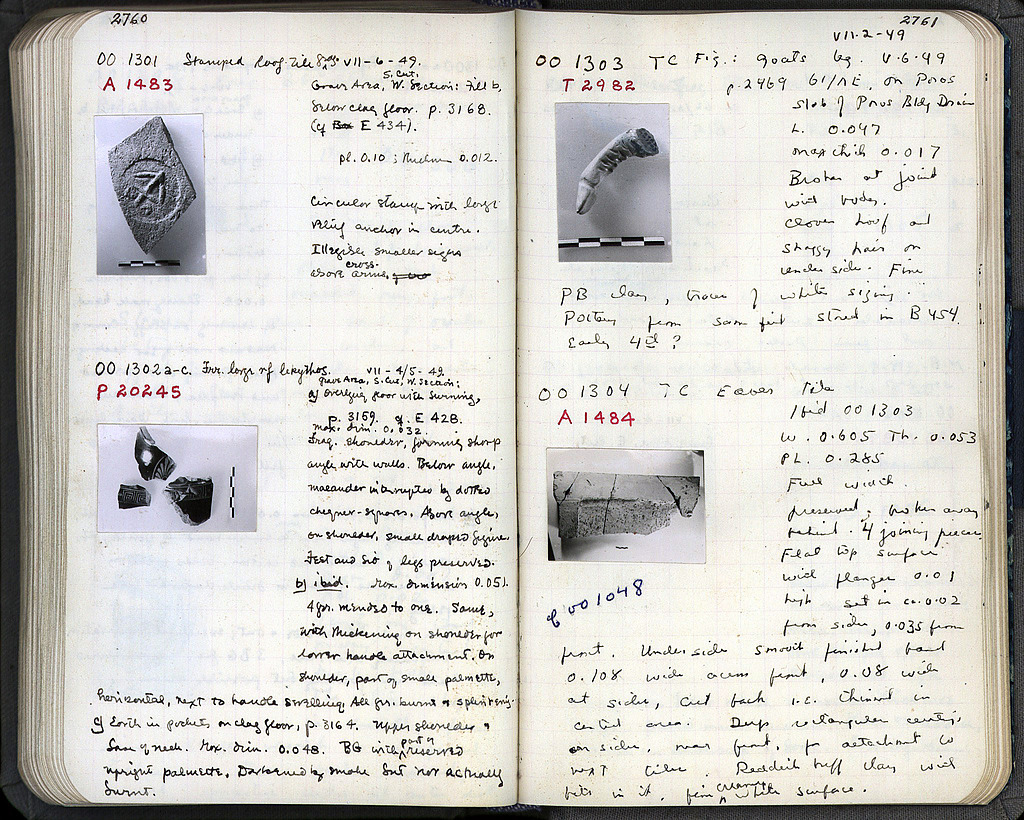 2760
OO 1301 Stamped Roof Tile VII-6-49.
A 1483
S. Cut.
Grave Area, W. Section: Fill b,
below clay floor. p. 3168.
(cf E 434).
pl. 0.10 ; thickn 0.012.
Circular stamp with large
relief anchor in centre.
Illegible smaller signs
cross.
above arms,
OO 1302a-c. Frr. large rf lekythos. VII - 4/5 - 49.
P 20245
Grave Area, S. Cut, W. Section:
a) overlying floor with burning,
p. 3159. cf. E 428.
max. dim. 0.032.
Frag. shoulder, forming sharp
angle with walls. Below angle,
maeander interrupted by dotted
chequer-squares. Above angle,
on shoulder, small draped figure.
Feet and bit of legs preserved.
b) ibid. Max. dimension 0.051.
4 frr. mended to one. Same,
with thickening on shoulder for
lower handle attachment. On
shoulder, part of small palmette,
horizontal, next to handle swelling. All frr. burnt & splintering.
c) Earth in pockets, on clay floor, p. 3164. Upper shoulder &
base of neck. Max. dim. 0.048. BG with part of reserved
upright palmette. Darkened by smoke but not actually
burnt.
2761
VII-2-49
OO 1303 TC Fig.: goats leg. V-6-49
T 2982
p. 2469 61/ΛE, on Poros
slab of Poros Bldg Drain
L. 0.047
max thick 0.017
Broken at joint
with body.
Cloven hoof and
shaggy hair on
under side. Fine
PB clay, traces of white sizing.
Pottery from same fill stored in B 454.
Early 4th ?
OO 1304 TC Eaves Tile
A 1484
Ibid OO 1303
W. 0.605 Th. 0.053
PL. 0.285
Full width
preserved; broken away
behind. 4 joining pieces
Flat top surface
with flanges 0.01
high set in ca. 0.02
from sides, 0.035 from
cf OO 1048
front. Underside smooth finished band
0.108 wide across front, 0.08 wide
at sides, cut back i.e. thinned in
central area. Deep rectangular cutting
on side, near front, for attachment to
next tile. Reddish buff clay with
bits in it, firm creamy white surface.